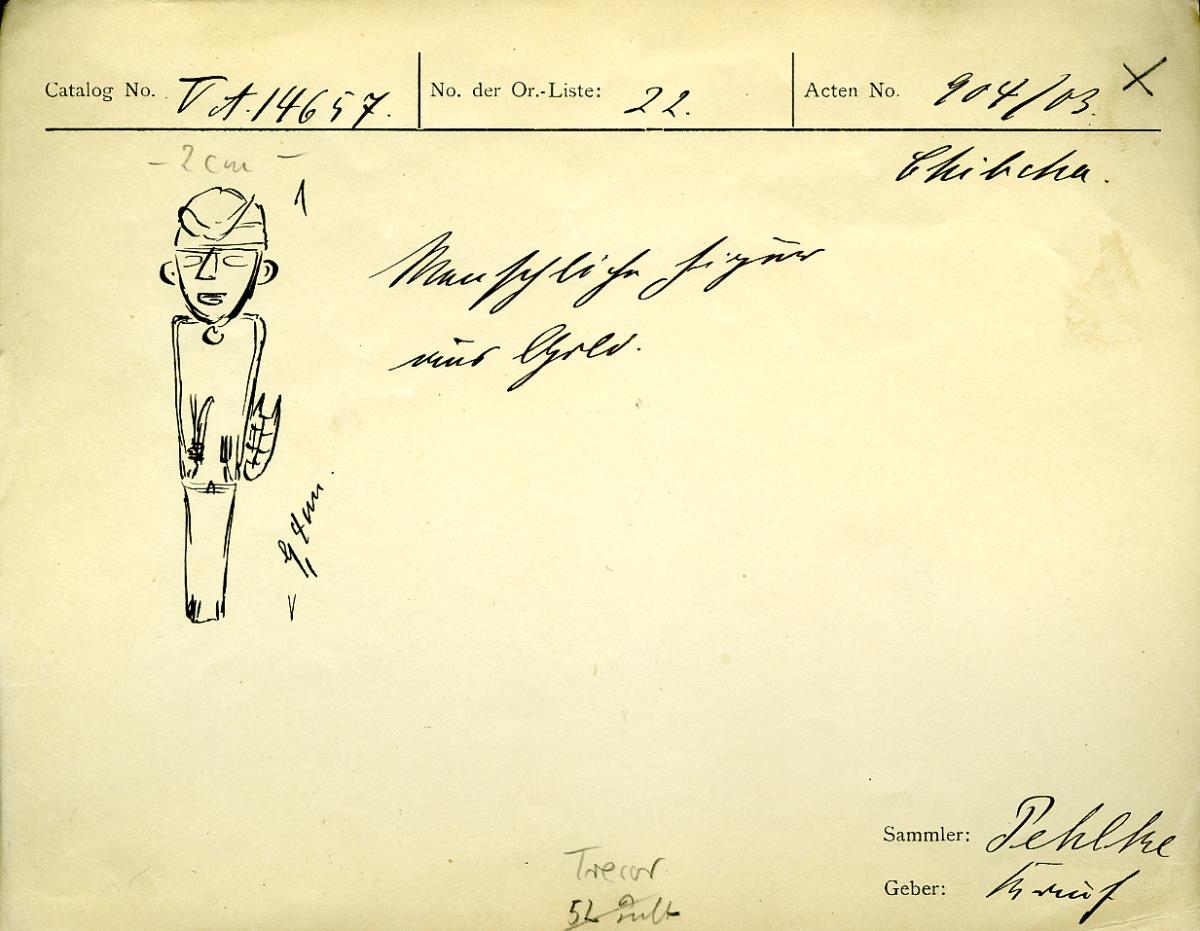 Catalog No. V A. 14657. No. der Or.-Liste: 22. Acten No. 904/03. X
Chibcha.
– 2 cm –
Menschliche Figur
aus Gold.
Sammler: Pehlke
Geber: Kauf
Tresor
52 Pult